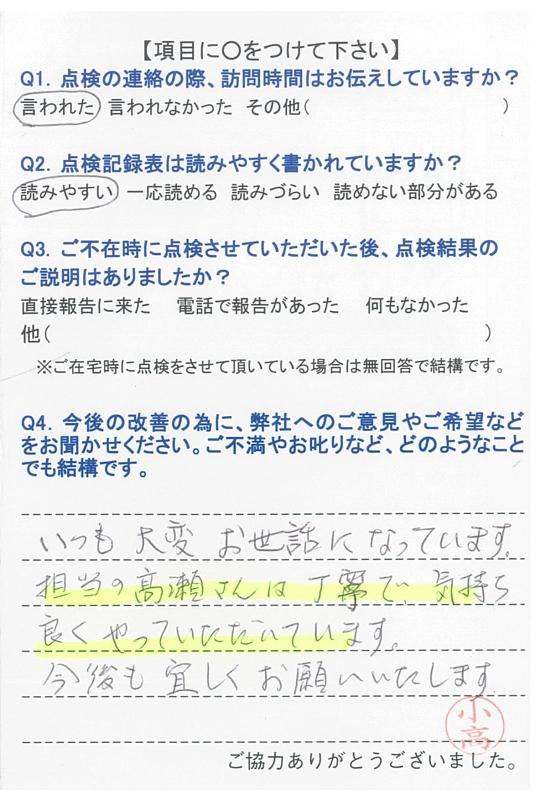 【項目に〇をつけて下さい】
Q1. 点検の連絡の際、訪問時間はお伝えしていますか？
言われた 言われなかった その他( )
Q2. 点検記録表は読みやすく書かれていますか？
読みやすい 一応読める 読みづらい 読めない部分がある
Q3. ご不在時に点検させていただいた後、点検結果の
ご説明はありましたか？
直接報告に来た 電話で報告があった 何もなかった
他( )
※ご在宅時に点検をさせて頂いている場合は無回答で結構です。
Q4. 今後の改善の為に、弊社へのご意見やご希望など
をお聞かせください。ご不満やお叱りなど、どのようなこと
でも結構です。
いつも大変お世話になっています。
担当の高瀬さんは丁寧で、気持ち
良くやっていただいています。
今後も宜しくお願いいたします
小高
ご協力ありがとうございました。